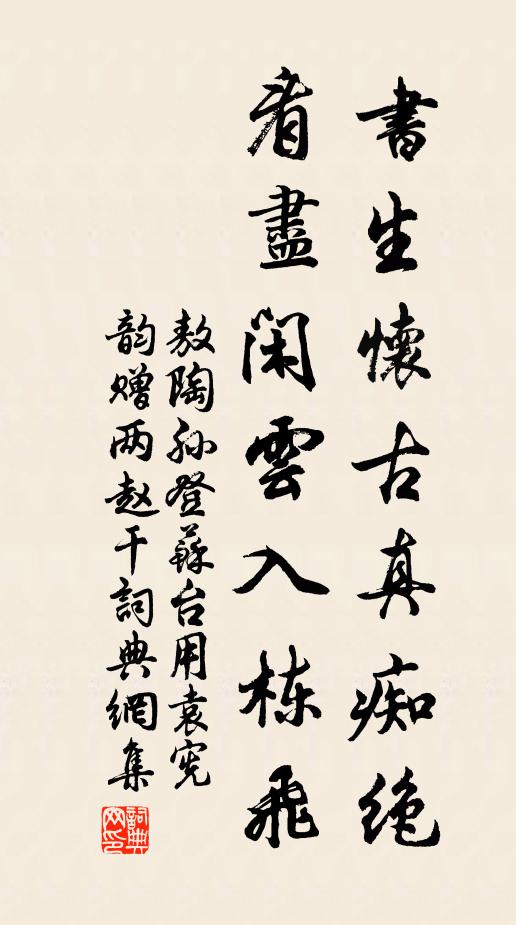 書生懷古真痴絶
看盡閑雲入棟飛
敖陶孙登蘇台用袁宪
韵赠两赵干詞典網集
詞典網印